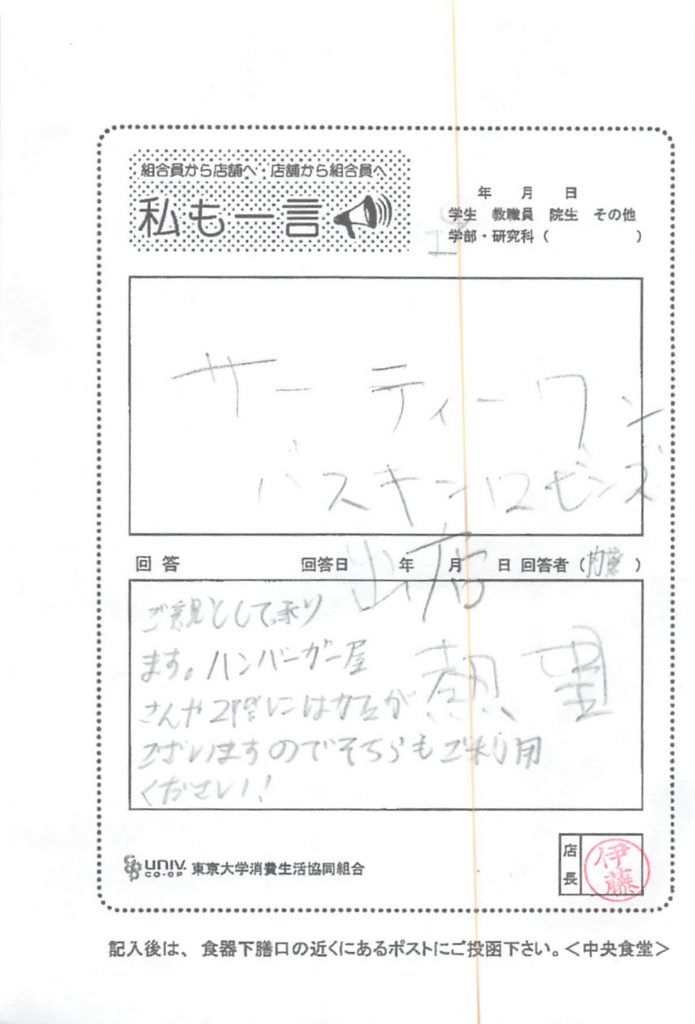 組合員から店舗へ・店舗から組合員へ
私も一言
年 月 日
学生 教職員 院生 その他
学部・研究科（ ）
サーティーワン
バスキンロビンズ
出店
熱望
回答 回答日 年 月 日 回答者（内藤）
ご意見として承り
ます。ハンバーガー屋
さんや2階にはカフェが
ございますのでそちらもご利用
ください！
UNIV. CO-OP 東京大学消費生活協同組合
店長 伊藤
記入後は、食器下膳口の近くにあるポストにご投函下さい。＜中央食堂＞